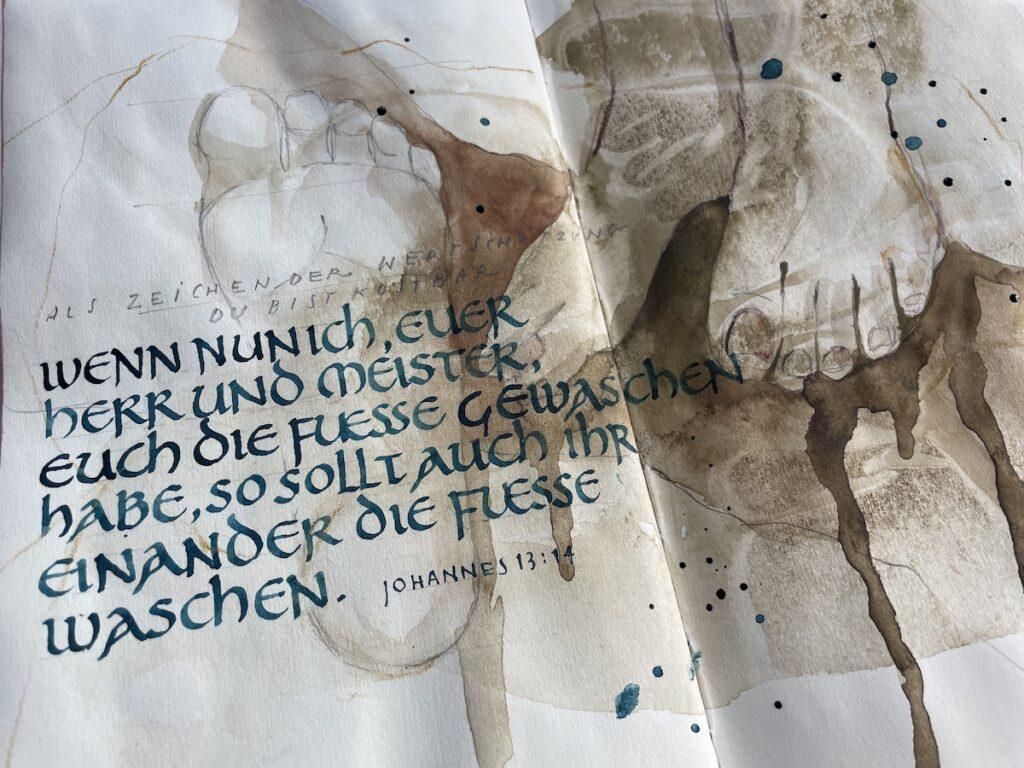 ALS ZEICHEN DER WERTSCHÄTZUNG
DU BIST KOSTBAR
WENN NUN ICH, EUER
HERR UND MEISTER,
EUCH DIE FUESSE GEWASCHEN
HABE, SO SOLLT AUCH IHR
EINANDER DIE FUESSE
WASCHEN.
JOHANNES 13:14